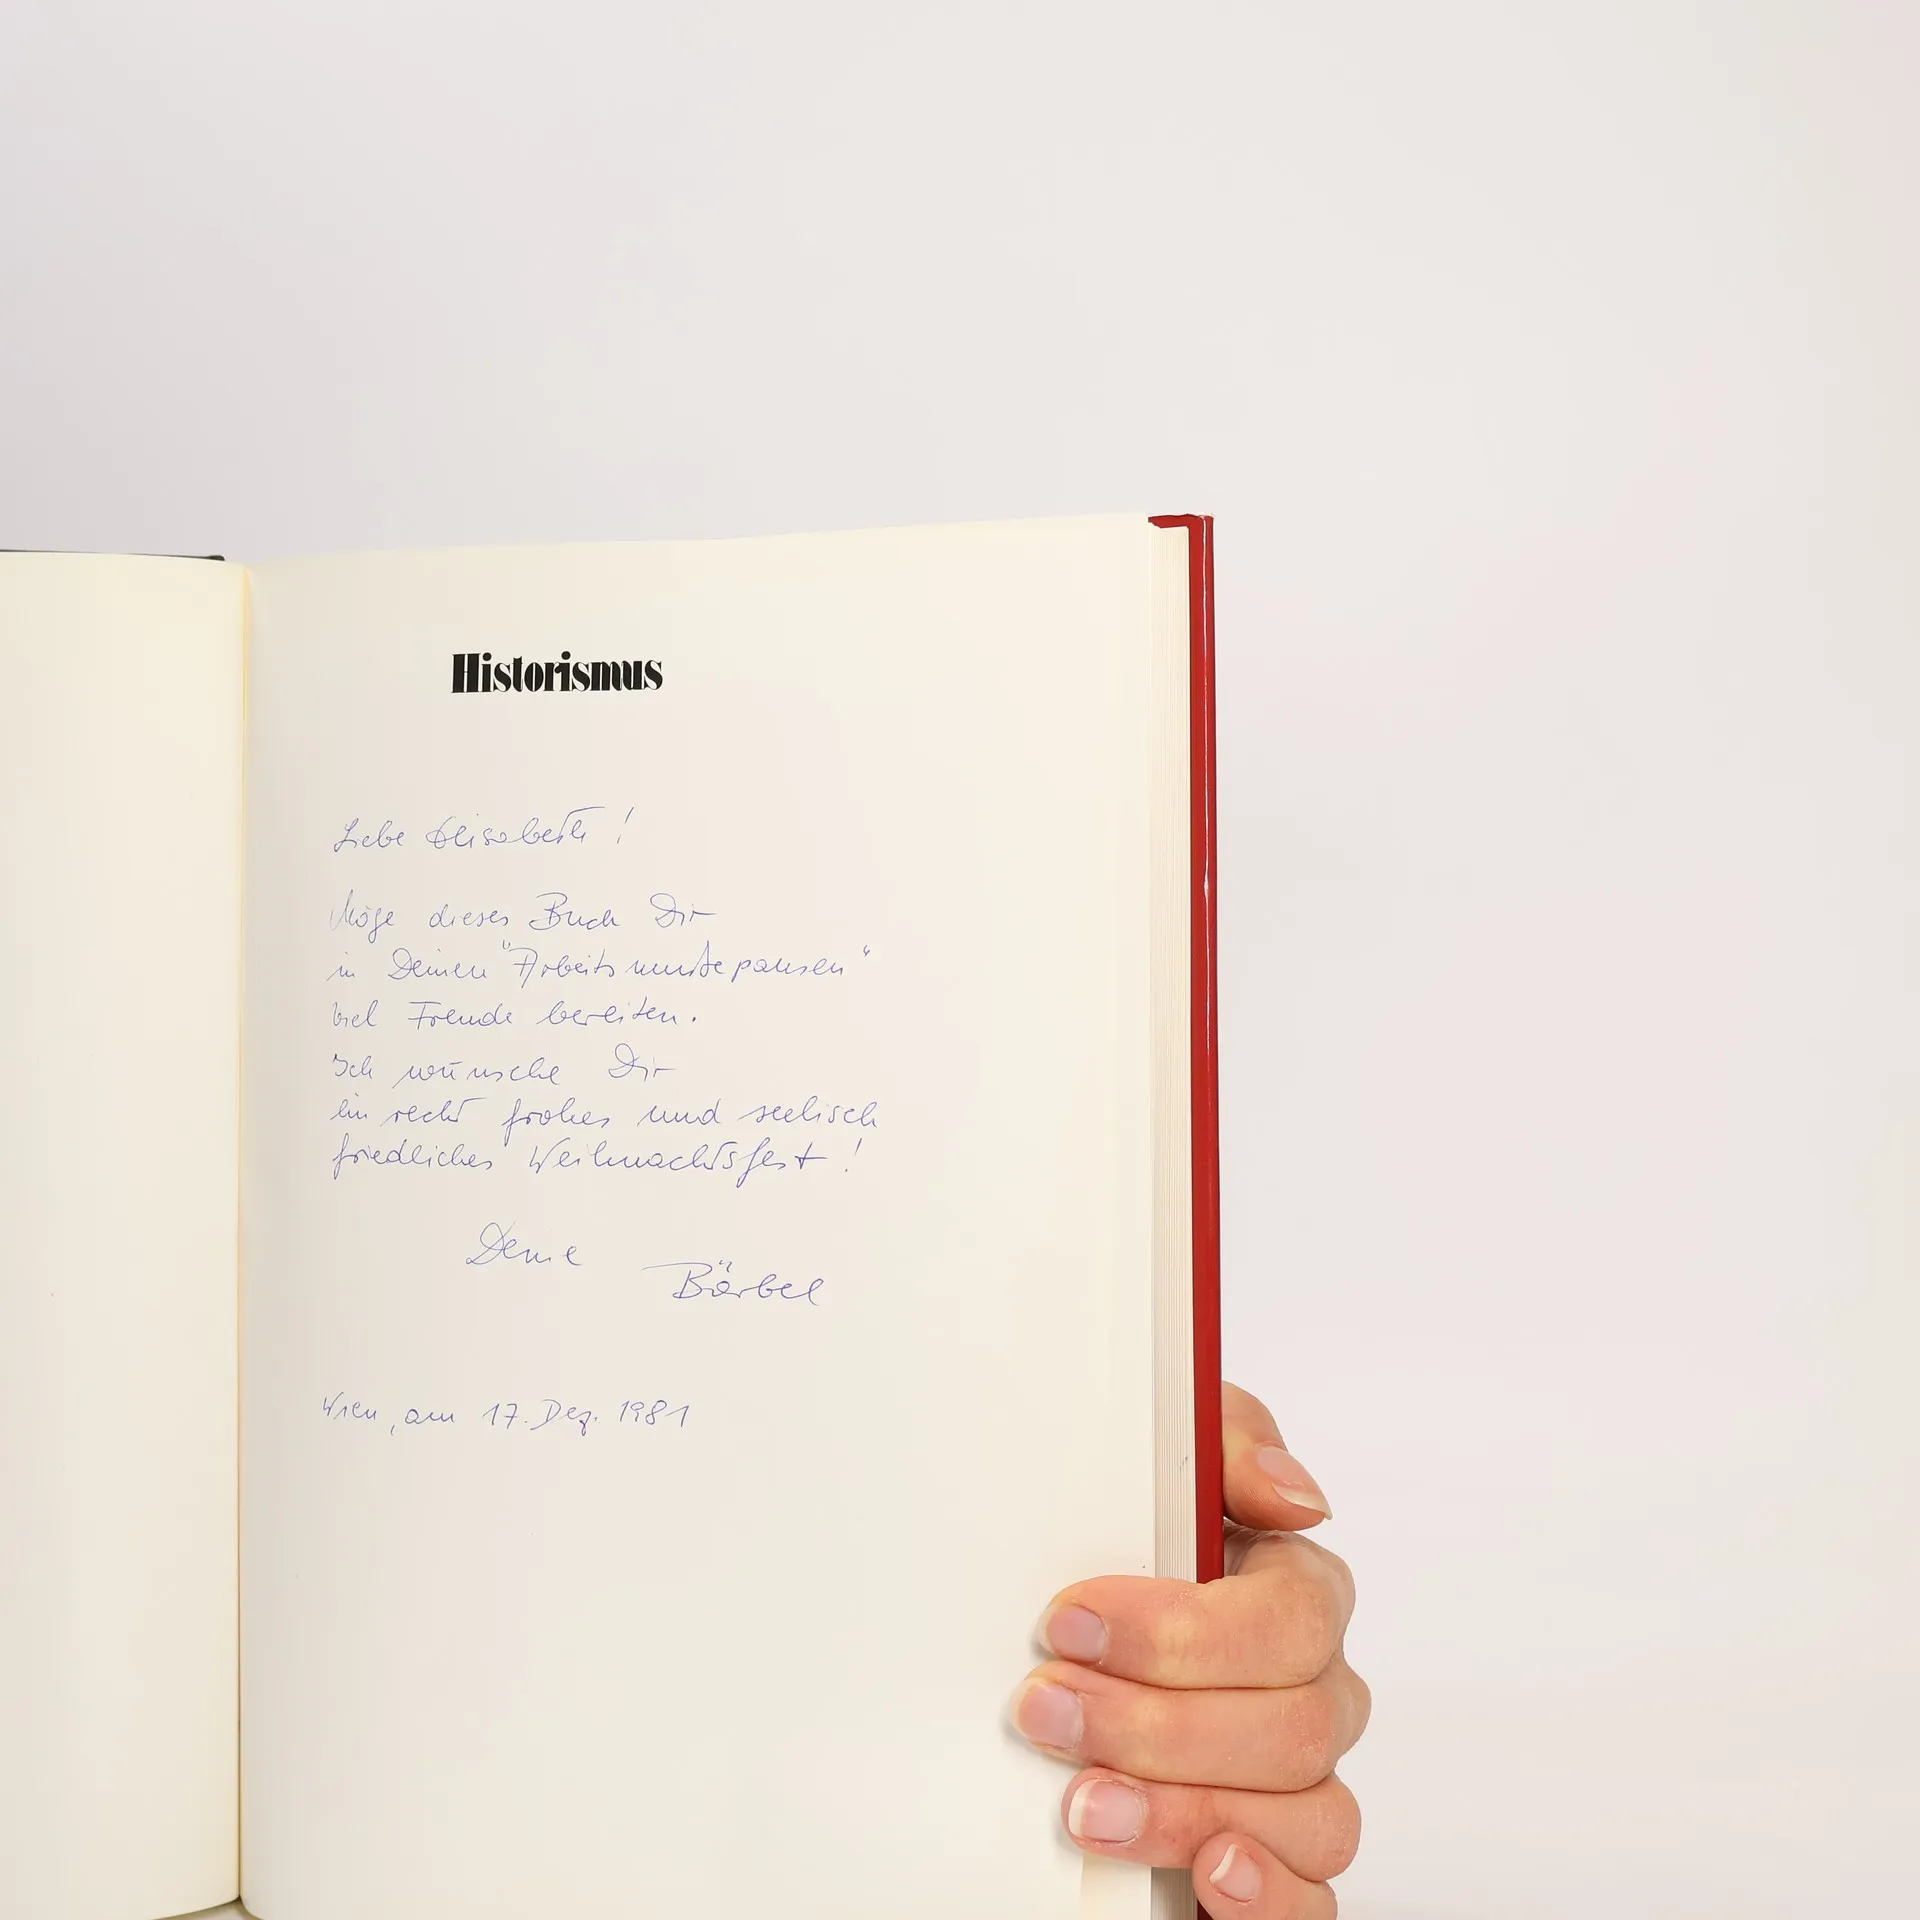 Historismus
Liebe Elisabeth!
Möge dieses Buch Dir
in Deinen "Arbeitsmußepausen"
viel Freude bereiten.
Ich wünsche Dir
ein recht frohes und seelisch
friedliches Weihnachtsfest!
Deine
Bärbel
Wien, am 17. Dez. 1981